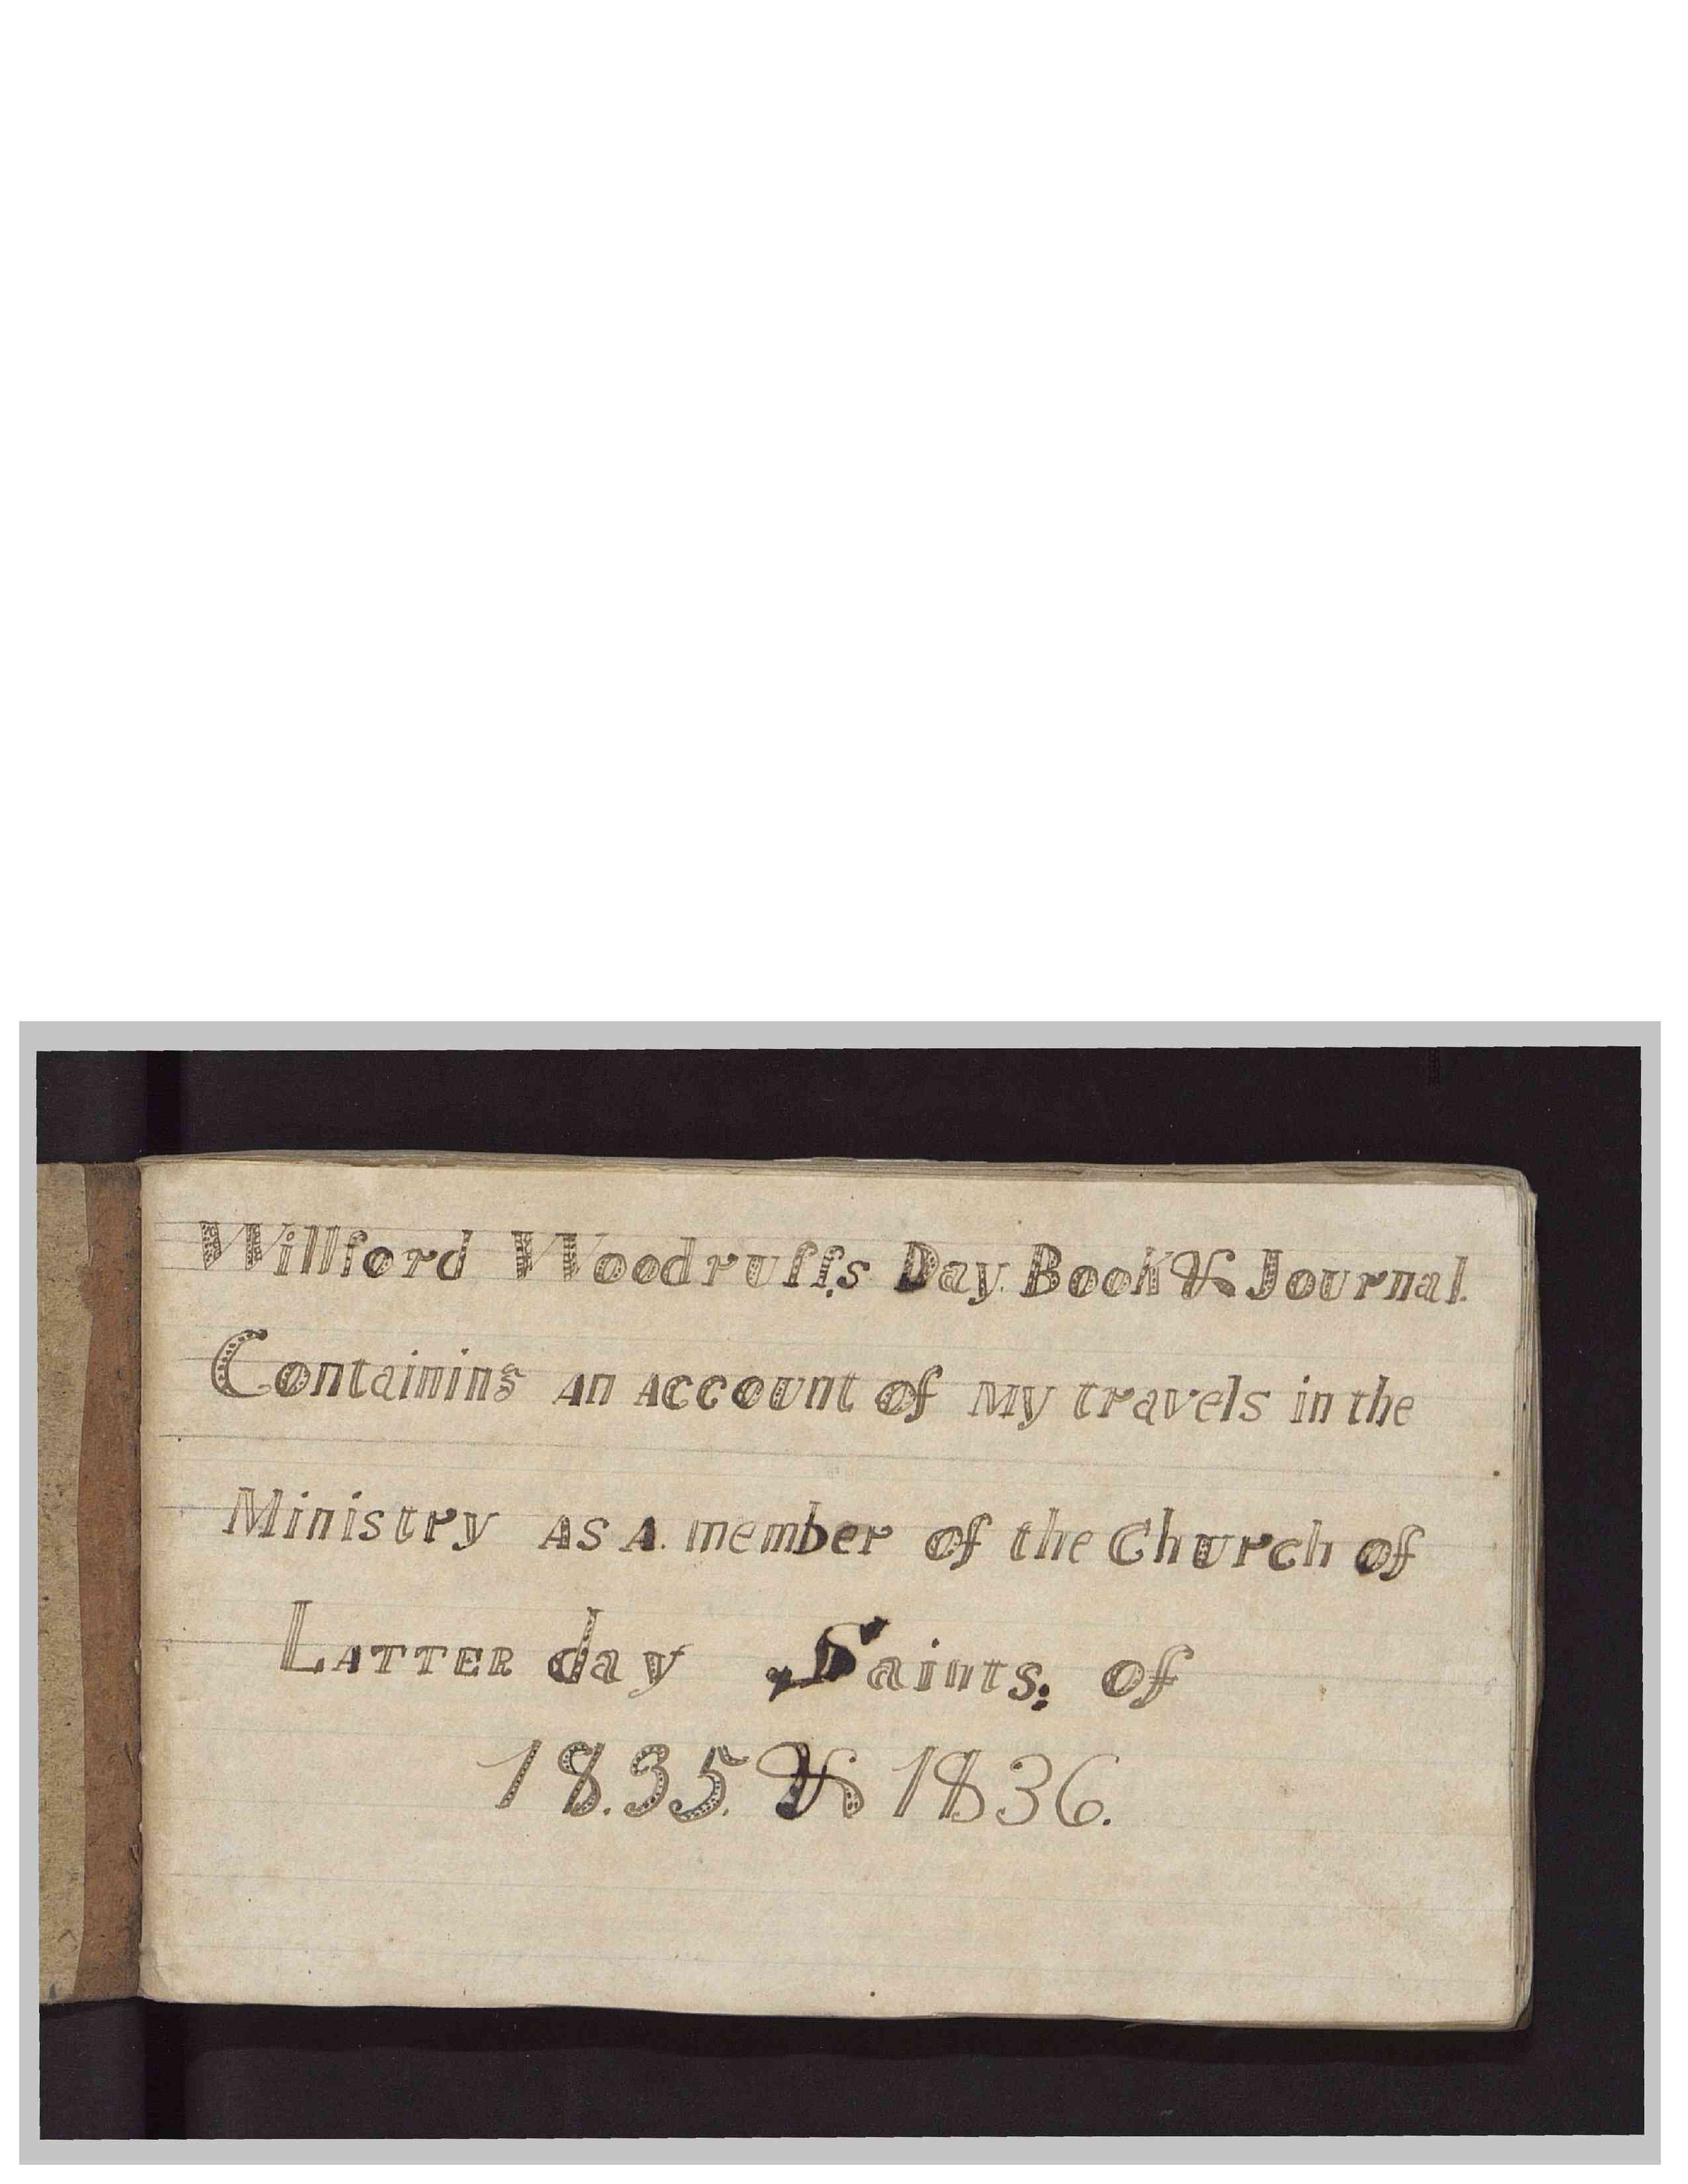 Willford Woodruff,s Day. Book & Journal.
Containing An Account of My travels in the
Ministry AS A. member of the Church of
LATTER day Saints: of
18.35. & 1836.